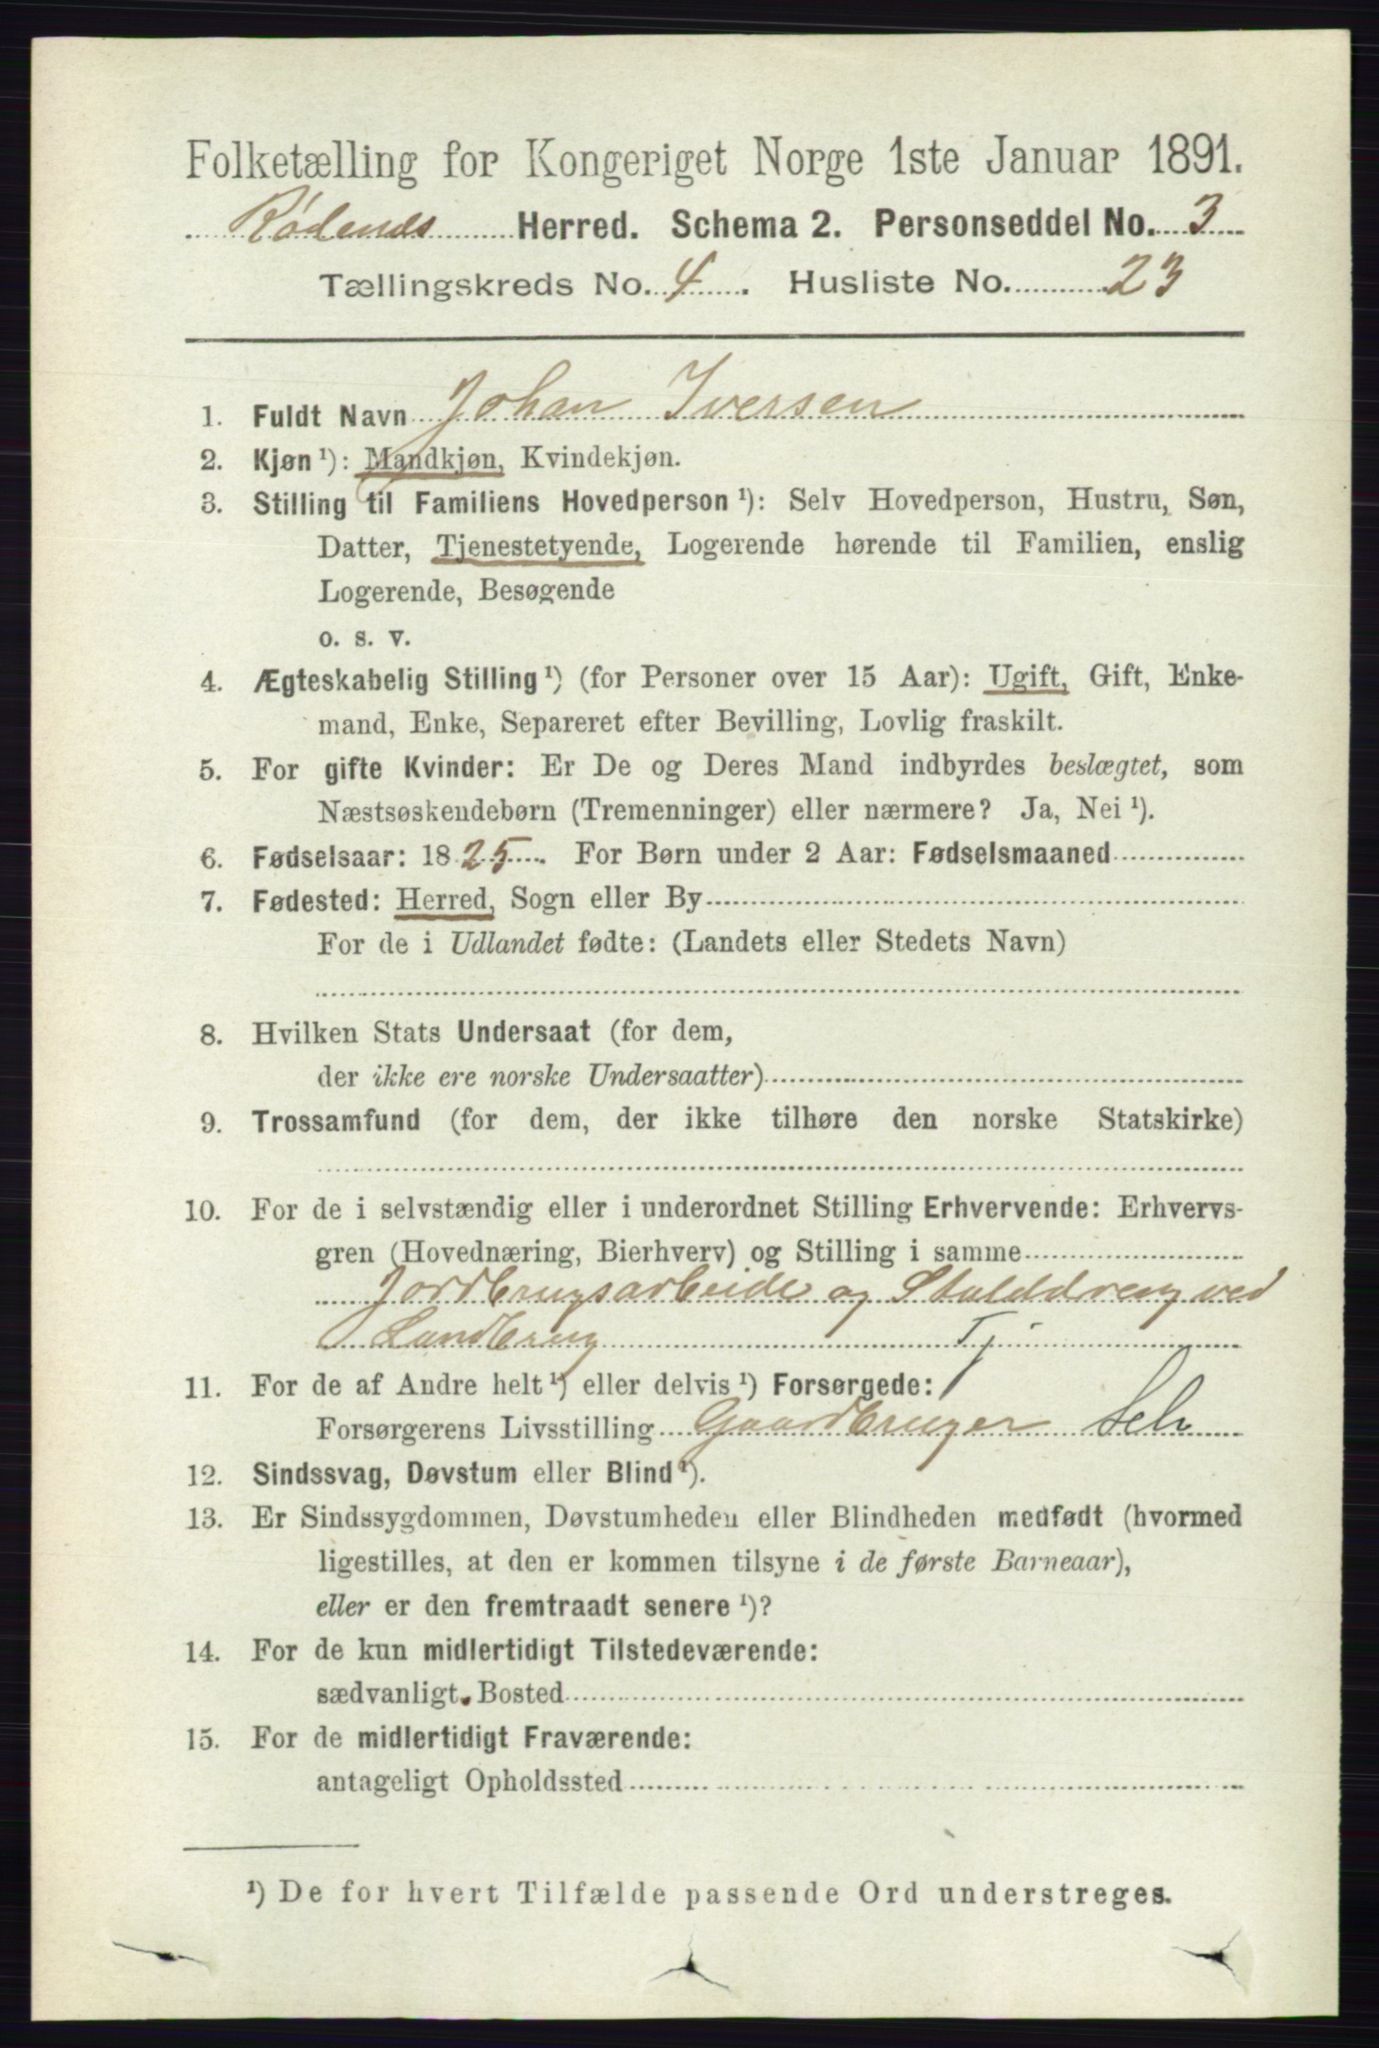 Folketælling for Kongeriget Norge 1ste Januar 1891.
Rødenes Herred. Schema 2. Personseddel No. 3
Tællingskreds No. 4. Husliste No. 23
1. Fuldt Navn Johan Iversen
2. Kjøn ¹): Mandkjøn, Kvindekjøn.
3. Stilling til Familiens Hovedperson ¹): Selv Hovedperson, Hustru, Søn,
Datter, Tjenestetyende, Logerende hørende til Familien, enslig
Logerende, Besøgende
o. s. v.
4. Ægteskabelig Stilling ¹) (for Personer over 15 Aar): Ugift, Gift, Enke-
mand, Enke, Separeret efter Bevilling, Lovlig fraskilt.
5. For gifte Kvinder: Er De og Deres Mand indbyrdes beslægtet, som
Næstsøskendebørn (Tremenninger) eller nærmere? Ja, Nei ¹).
6. Fødselsaar: 1825. For Børn under 2 Aar: Fødselsmaaned
7. Fødested: Herred, Sogn eller By
For de i Udlandet fødte: (Landets eller Stedets Navn)
8. Hvilken Stats Undersaat (for dem,
der ikke ere norske Undersaatter)
9. Trossamfund (for dem, der ikke tilhøre den norske Statskirke)
10. For de i selvstændig eller i underordnet Stilling Erhvervende: Erhvervs-
gren (Hovednæring, Bierhverv) og Stilling i samme
Jordbrugsarbeide og Stalddreng ved
Landbrug Tj
11. For de af Andre helt ¹) eller delvis ¹) Forsørgede:
Forsørgerens Livsstilling Gaardbruger Selv
12. Sindssvag, Døvstum eller Blind ¹).
13. Er Sindssygdommen, Døvstumheden eller Blindheden medfødt (hvormed
ligestilles, at den er kommen tilsyne i de første Barneaar),
eller er den fremtraadt senere ¹)?
14. For de kun midlertidigt Tilstedeværende:
sædvanligt Bosted
15. For de midlertidigt Fraværende:
antageligt Opholdssted
¹) De for hvert Tilfælde passende Ord understreges.